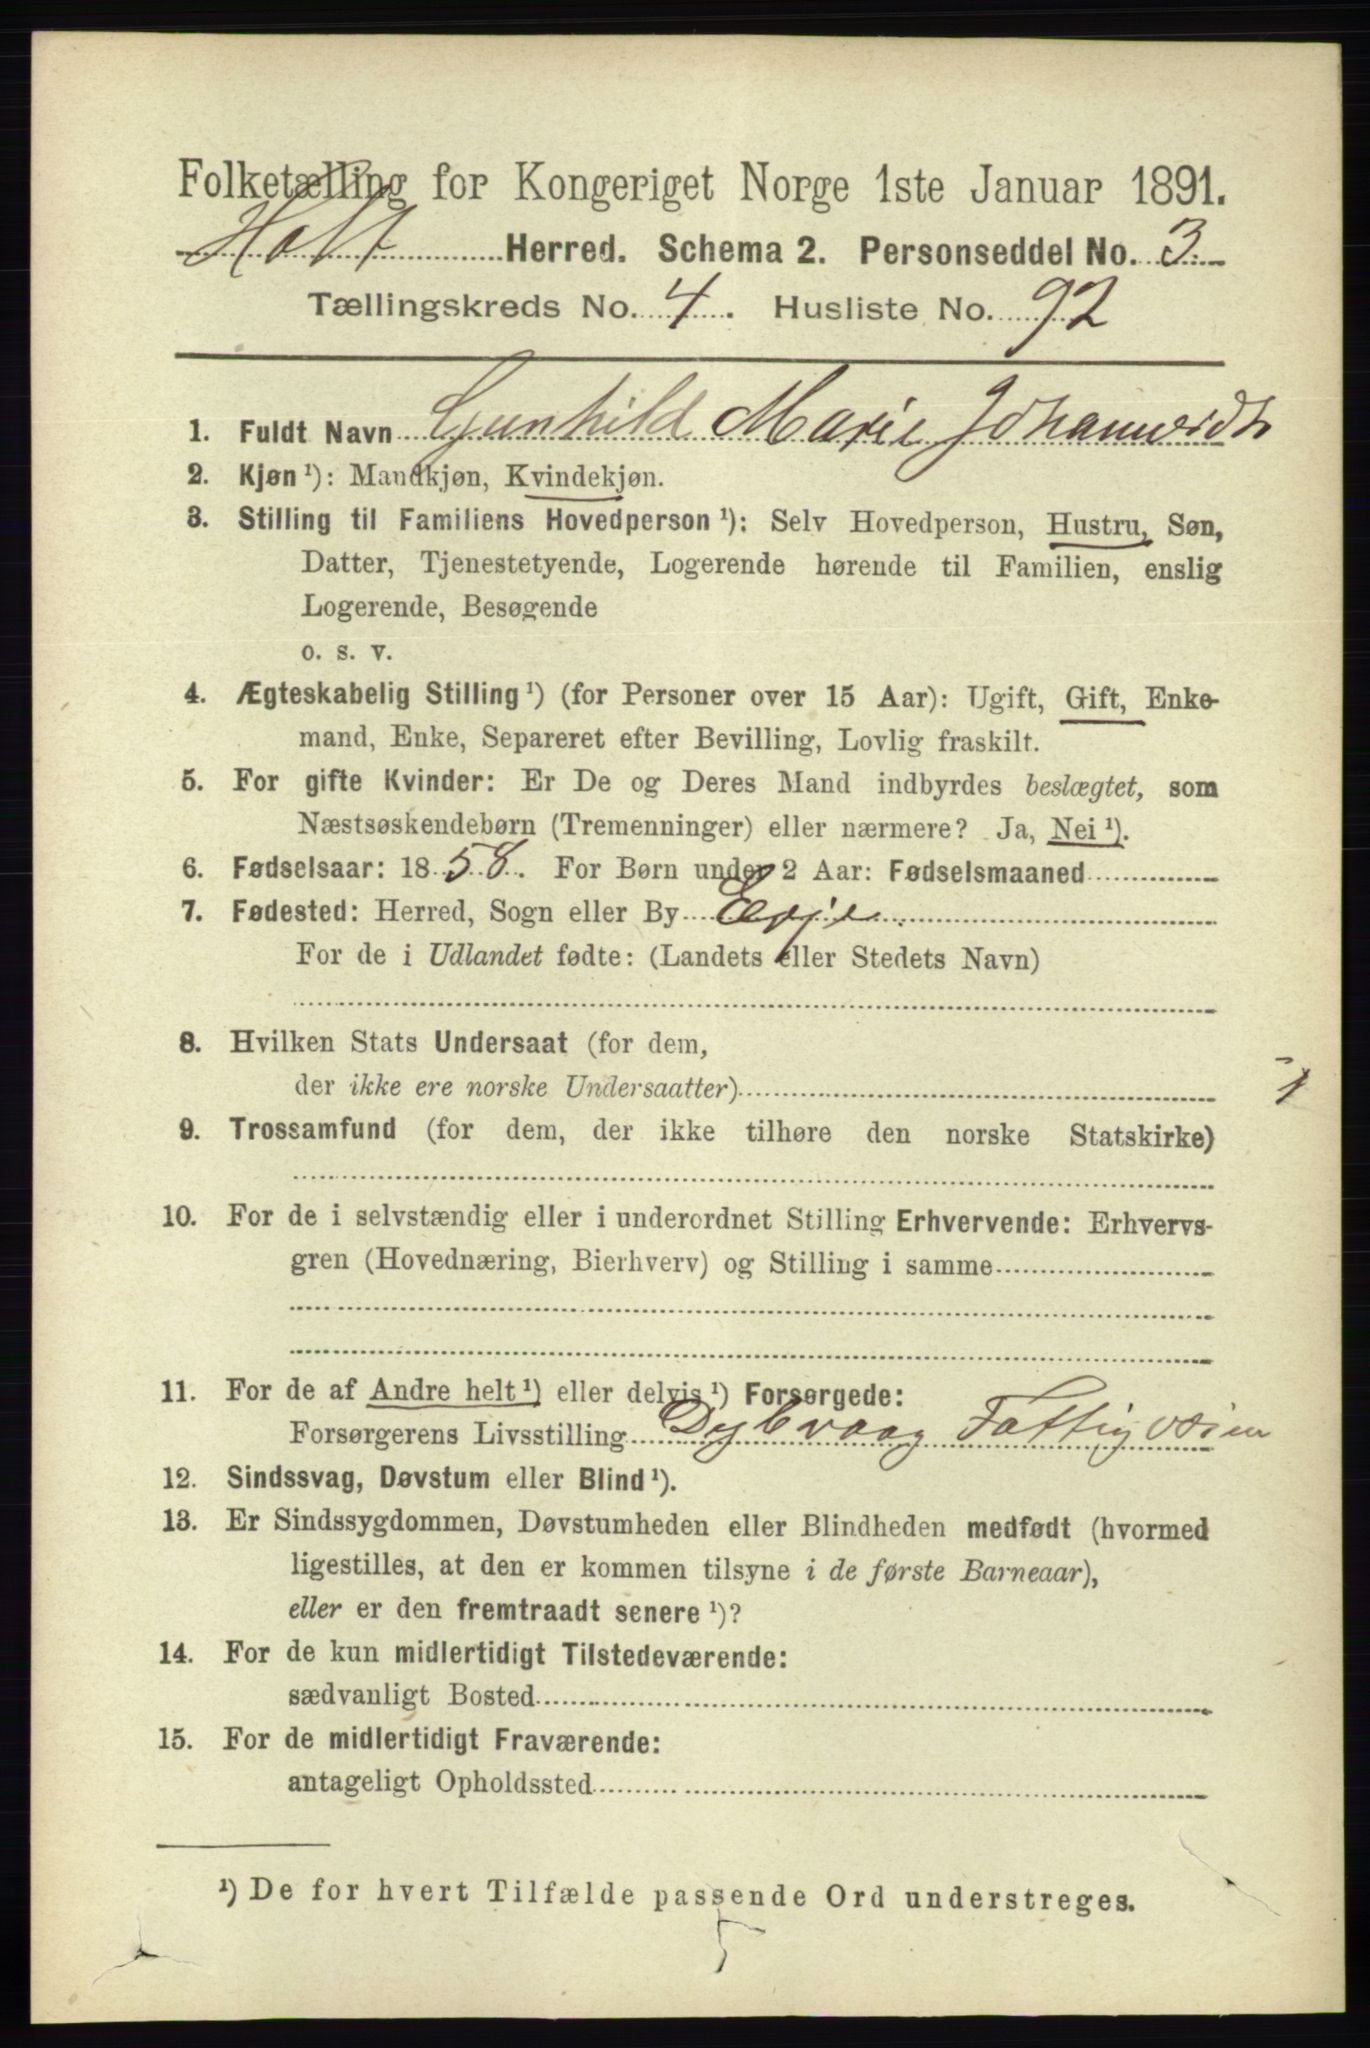 Folketælling for Kongeriget Norge 1ste Januar 1891.
Holt Herred. Schema 2. Personseddel No. 3
Tællingskreds No. 4. Husliste No. 92
1. Fuldt Navn Gunhild Marie
2. Kjøn ¹): Mandkjøn, Kvindekjøn.
3. Stilling til Familiens Hovedperson ¹): Selv Hovedperson, Hustru, Søn,
Datter, Tjenestetyende, Logerende hørende til Familien, enslig
Logerende, Besøgende
o. s. v.
4. Ægteskabelig Stilling ¹) (for Personer over 15 Aar): Ugift, Gift, Enke-
mand, Enke, Separeret efter Bevilling, Lovlig fraskilt.
5. For gifte Kvinder: Er De og Deres Mand indbyrdes beslægtet, som
Næstsøskendebørn (Tremenninger) eller nærmere? Ja, Nei ¹).
6. Fødselsaar: 1858. For Børn under 2 Aar: Fødselsmaaned
7. Fødested: Herred, Sogn eller By Evje.
For de i Udlandet fødte: (Landets eller Stedets Navn)
8. Hvilken Stats Undersaat (for dem,
der ikke ere norske Undersaatter)
9. Trossamfund (for dem, der ikke tilhøre den norske Statskirke)
10. For de i selvstændig eller i underordnet Stilling Erhvervende: Erhvervs-
gren (Hovednæring, Bierhverv) og Stilling i samme
11. For de af Andre helt ¹) eller delvis ¹) Forsørgede:
Forsørgerens Livsstilling Dybvaag Fattigvæsen
12. Sindssvag, Døvstum eller Blind ¹).
13. Er Sindssygdommen, Døvstumheden eller Blindheden medfødt (hvormed
ligestilles, at den er kommen tilsyne i de første Barneaar),
eller er den fremtraadt senere ¹)?
14. For de kun midlertidigt Tilstedeværende:
sædvanligt Bosted
15. For de midlertidigt Fraværende:
antageligt Opholdssted
¹) De for hvert Tilfælde passende Ord understreges.
5